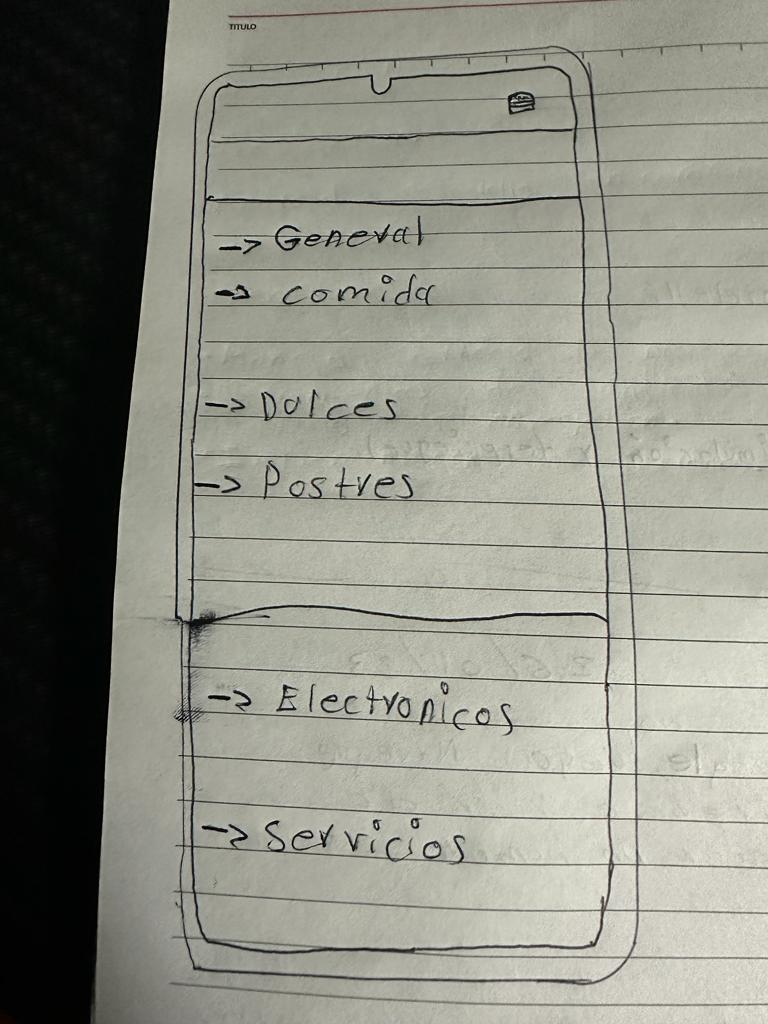 TITULO
-> General
-> comida
-> Dulces
-> Postres
-> Electronicos
-> Servicios